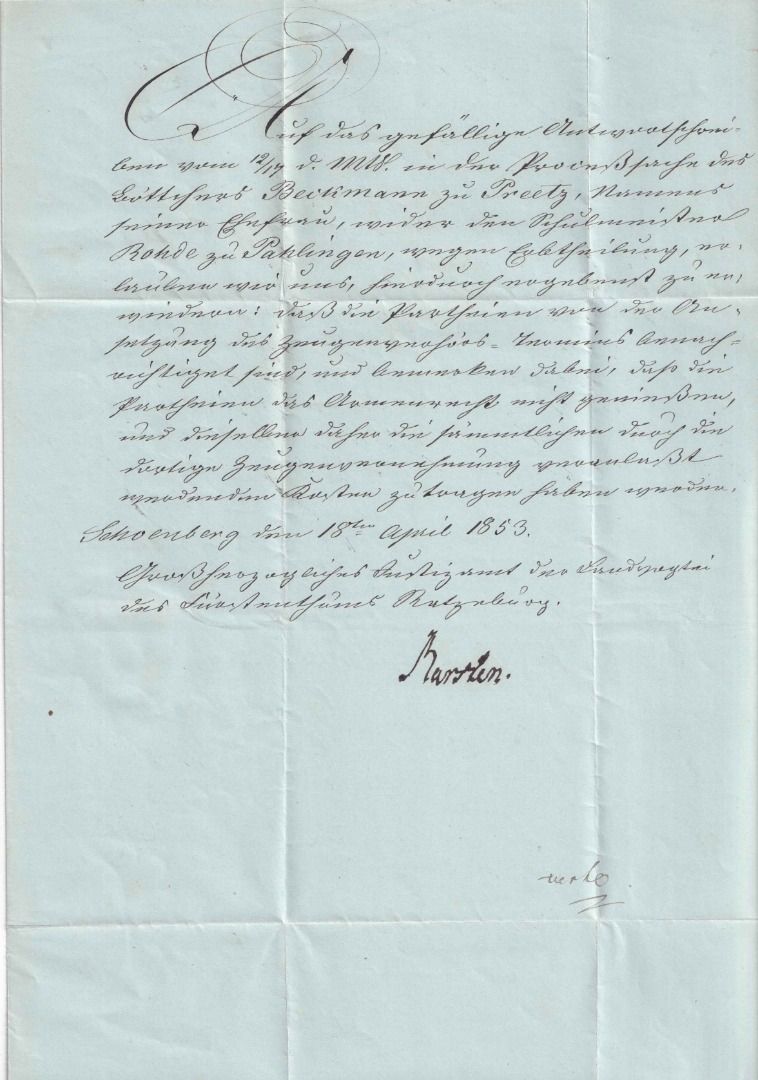 Auf das gefällige Antwortschrei-
ben vom 12/14 d. Mts. in der Proceßsache des
Böttchers Beckmann zu Preetz, Namens
seiner Ehefrau, wider den Schulmeister
Rohde zu Pahlingen, wegen Erbtheilung, er-
lauben wir uns, hierdurch ergebenst zu er-
wiedern: daß die Partheien von der An-
setzung des Zeugenverhörs-Termins benach-
richtiget sind, und bemerken dabei, daß die
Partheien das Armenrecht nicht genießen,
und dieselben daher die sämmtlichen durch die
dortige Zeugenvernehmung veranlaßt
werdenden Kosten zu tragen haben werden.
Schoenberg den 18ten April 1853.
Großherzogliches Justizamt der Landvogtei
des Fürstenthums Ratzeburg.
Karsten.